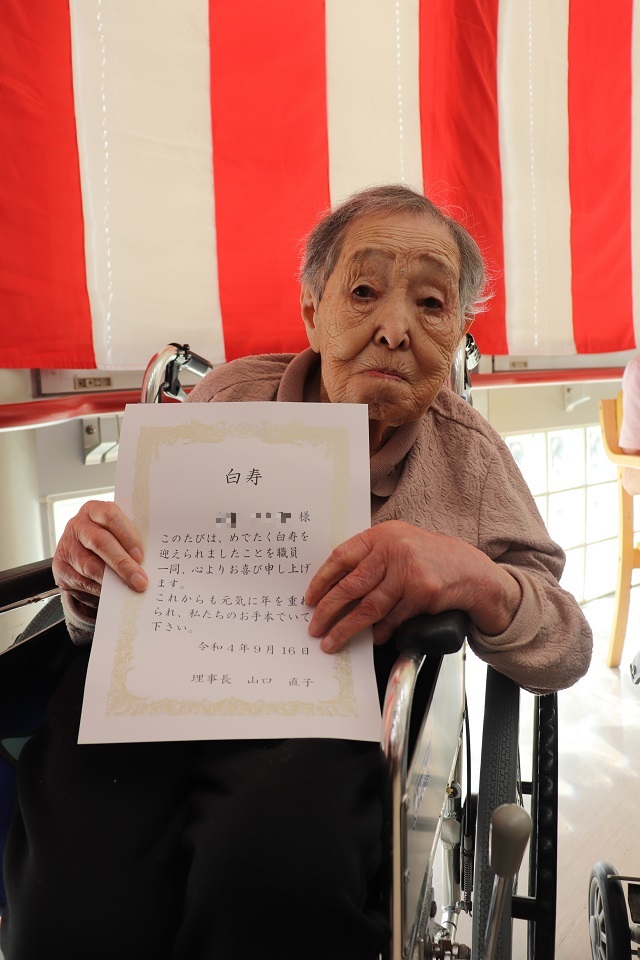 白寿
様
このたびは、めでたく白寿を
迎えられましたことを職員
一同、心よりお喜び申し上げ
ます。
これからも元気に年を重ね
られ、私たちのお手本でいて
下さい。
令和4年9月16日
理事長 山口 直子